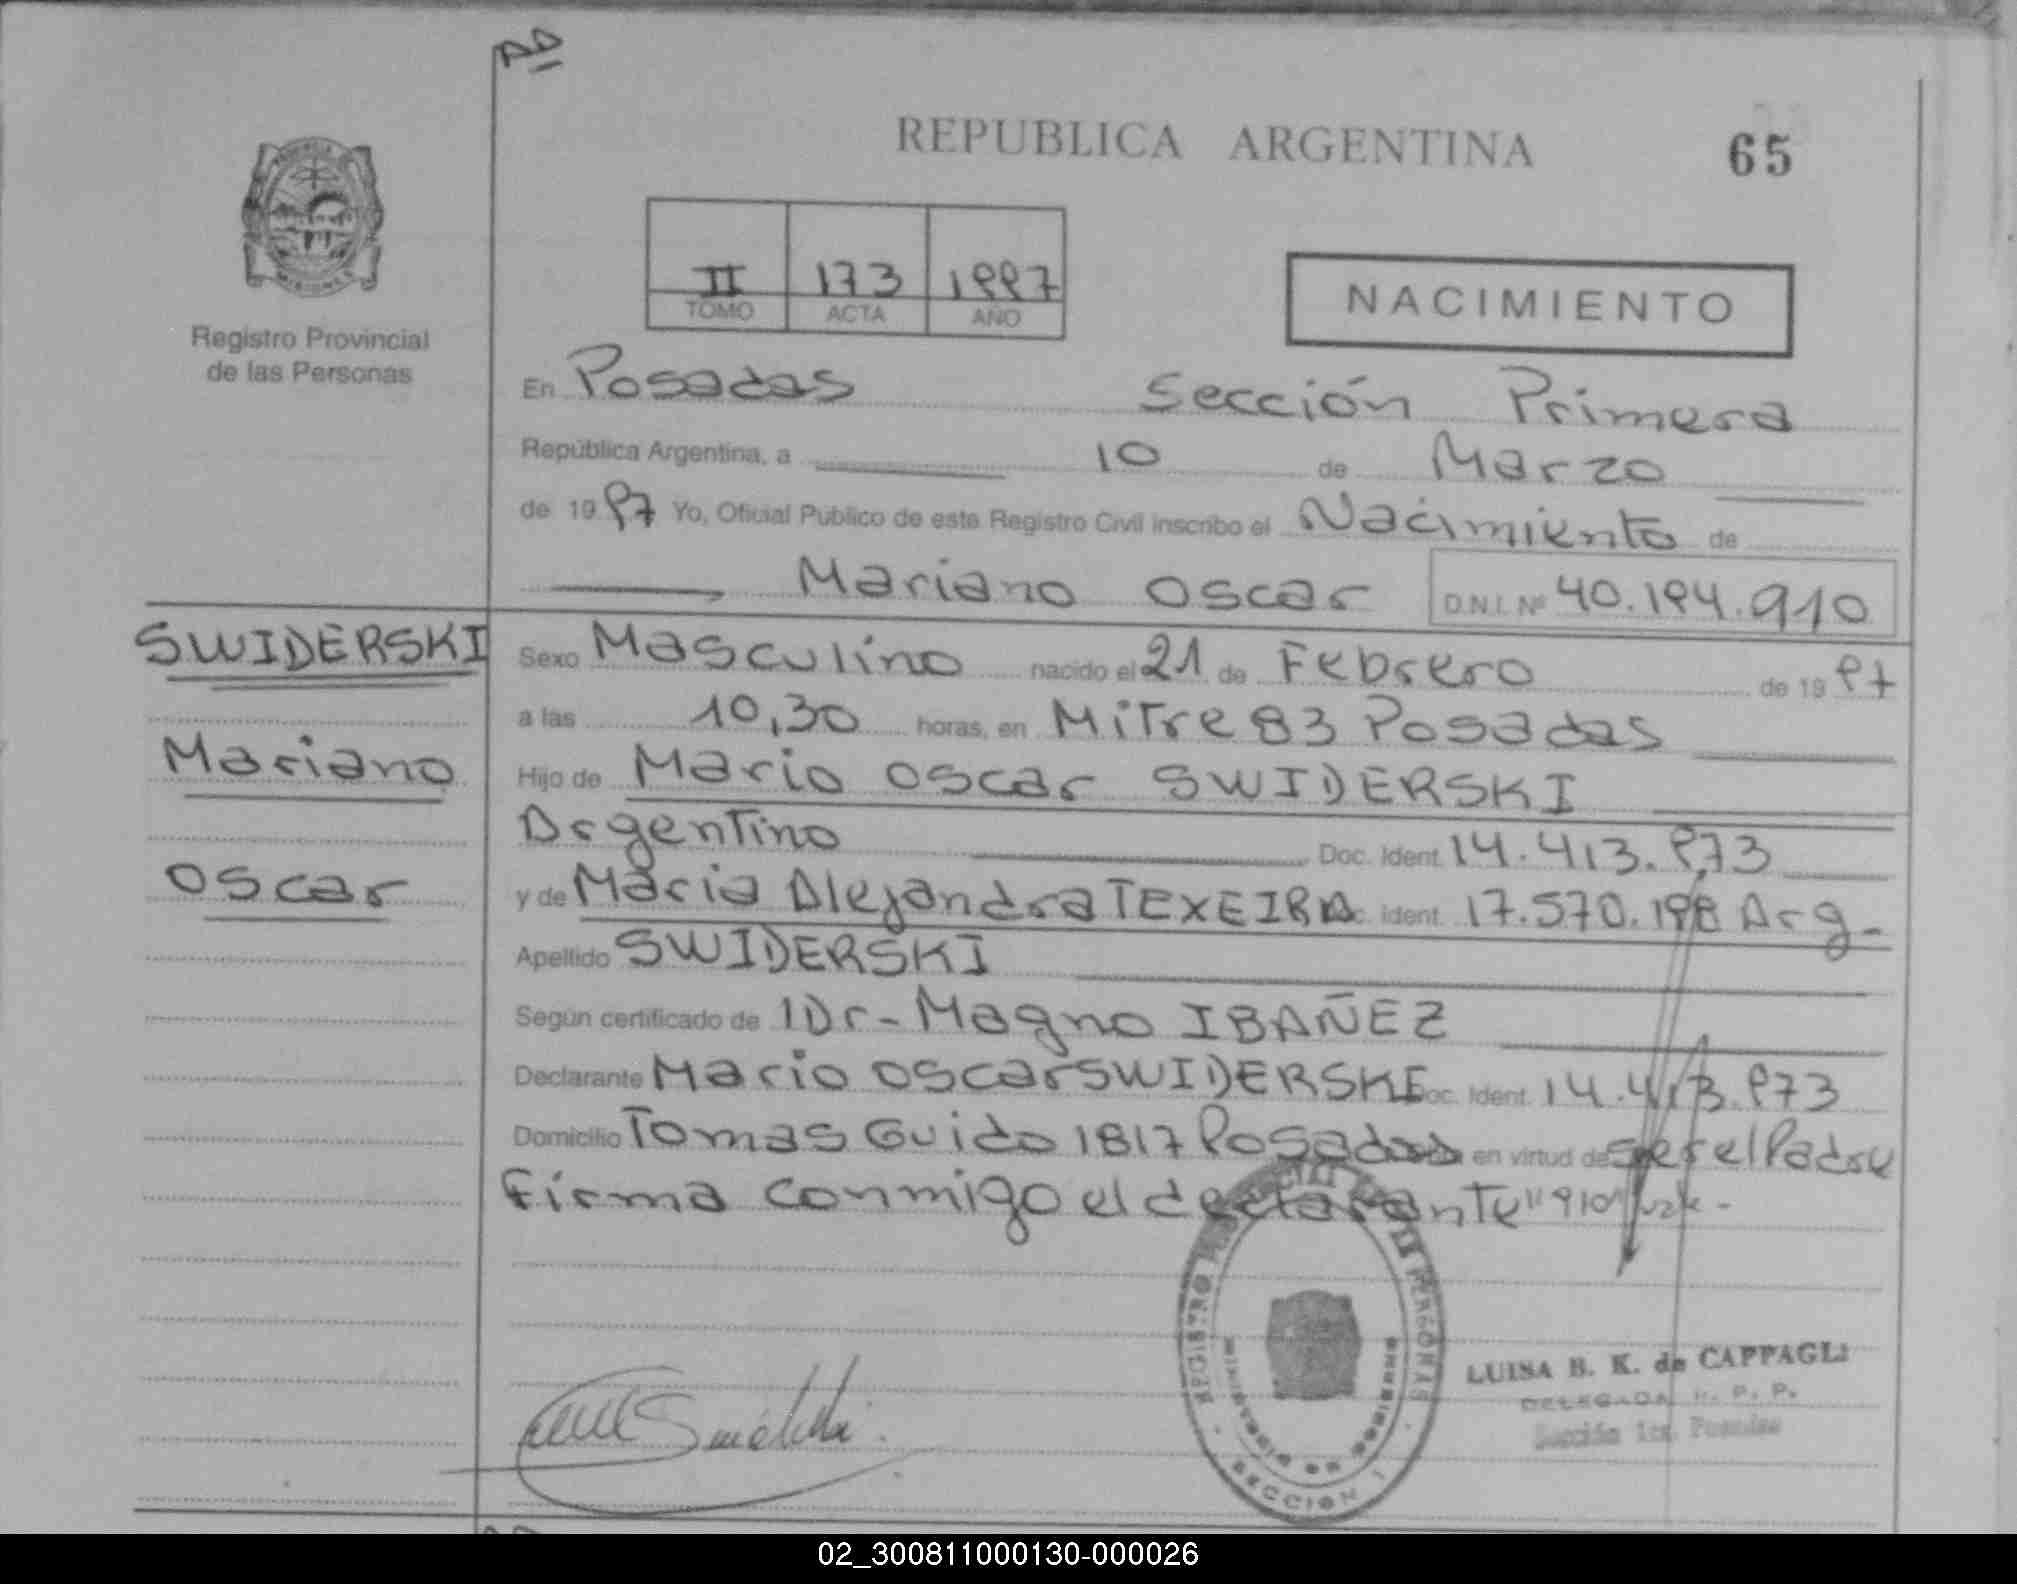 REPUBLICA ARGENTINA
65
II 173 1997
TOMO ACTA AÑO
NACIMIENTO
Registro Provincial
de las Personas
En Posadas Sección Primera
República Argentina, a 10 de Marzo
de 1997 Yo, Oficial Público de este Registro Civil inscribo el Nacimiento de
Mariano Oscar D.N.I. Nº 40.194.910
SWIDERSKI
Mariano
Oscar
Sexo Masculino nacido el 21 de Febrero de 1997
a las 10,30 horas, en Mitre 83 Posadas
Hijo de Mario Oscar SWIDERSKI
Argentino Doc. Ident. 14.413.973
y de Maria Alejandra TEXEIRA Doc. Ident. 17.570.198 Arg-
Apellido SWIDERSKI
Según certificado de 1 Dr- Magno IBAÑEZ
Declarante Mario Oscar SWIDERSKI Doc. Ident. 14.413.973
Domicilio Tomas Guido 1817 Posadas en virtud de ser el Padre
Firma conmigo el declarante "910" vale-
LUISA B. K. de CAPPAGLI
DELEGADA R. P. P.
Sección 1ra. Posadas
SECCION 1
02_300811000130-000026